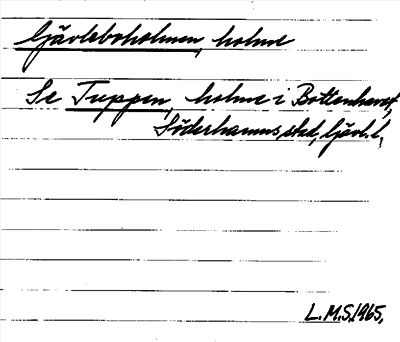 Gävleboholmen, holme
Se Tuppen, holme i Bottenhavet,
Söderhamns stad, Gävl. l.
L.M.S. 1965.